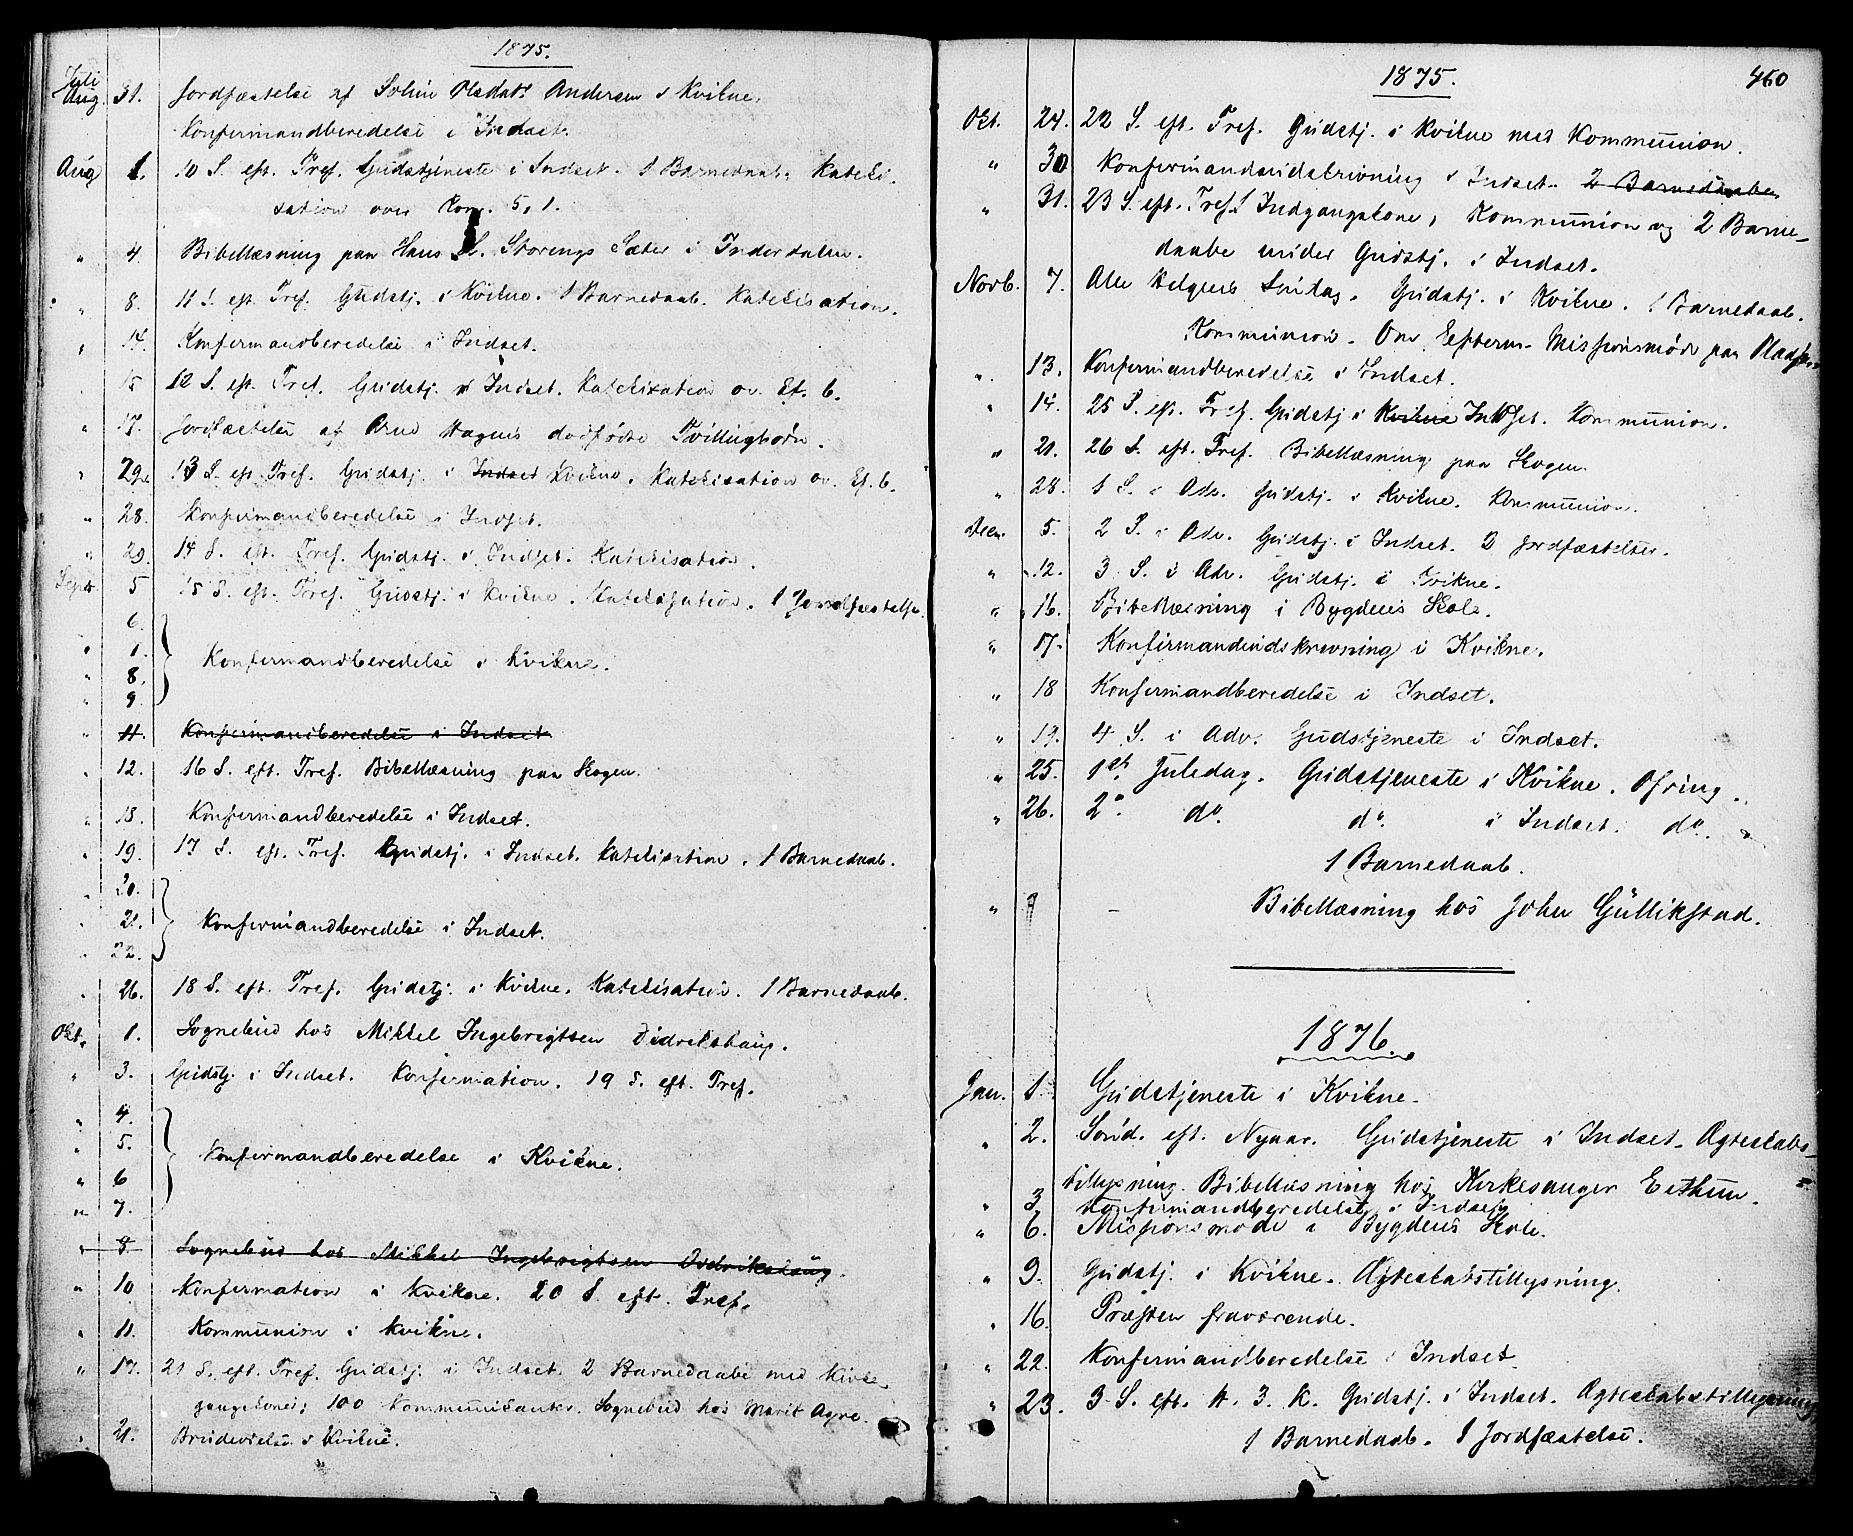 1875.
Juli
Aug. 31. Jordfæstelse af Soline Olsdatr Andersen i Kvikne.
Konfirmandberedelse i Indset.
Aug 1. 10 S. eft. Tref. Gudstjeneste i Indset. 1 Barnedaab. Kateki-
sation over Rom. 5,1.
" 4. Bibellæsning paa Hans S. Storengs Sæter i Inderdalen.
" 8. 11 S. eft. Tref. Gudstj. i Kvikne. 1 Barnedaab. Katekisation.
" 14. Konfirmandberedelse i Indset.
15 12 S. eft. Tref. Gudstj. i Indset. Katekisation ov. Ef. 6.
" 17. Jordfæstelse af Arne Hagens dødfødte Tvillingbørn.
" 22. 13 S. eft. Tref. Gudstj. i Indset Kvikne. Katekisation ov. Ef. 6.
" 28. Konfirmandberedelse i Indset.
" 29. 14 S. eft. Tref. Gudstj. i Indset. Katekisation.
Septr 5 15 S. eft. Tref. Gudstj. i Kvikne. Katekisation. 1 Jordfæstelse.
6.
"
" 8.
" 9
Konfirmandberedelse i Kvikne.
" 11. Konfirmandberedelse i Indset
" 12. 16 S. eft. Tref. Bibellæsning paa Skogen.
" 18. Konfirmandberedelse i Indset.
" 19. 17 S. eft. Tref. Gudstj. i Indset. Katekisation. 1 Barnedaab.
" 20.
" 21.
" 22.
Konfirmandberedelse i Indset.
" 26. 18 S. eft. Tref. Gudstj. i Kvikne. Katekisation. 1 Barnedaab.
Okt. 1. Sognebud hos Mikkel Ingebrigtsen Didrikshaug.
" 3. Gudstj. i Indset. Konfirmation. 19 S. eft. Tref.
" 4.
" 5.
" 6
" 7.
Konfirmandberedelse i Kvikne.
" 8 Sognebud hos Mikkel Ingebrigtsen Didrikshaug.
" 10. Konfirmation i Kvikne. 20 S. eft. Tref.
" 11. Kommunion i Kvikne.
" 17. 21 S. eft. Tref. Gudstj. i Indset. 2 Barnedaabe med Kirke-
gangskoner; 100 Kommunikanter. Sognebud hos Marit
" 21. Brudevielse i Kvikne.
1875. 460
Okt. 24. 22 S. eft. Tref. Gudstj. i Kvikne med Kommunion.
" 30 Konfirmandindskrivning i Indset. 2 Barnedaaber
" 31. 23 S. eft. Tref. 1 Indgangskone, Kommunion og 2 Barne-
daabe under Gudstj. i Indset.
Novb. 7. Alle Helgens Søndag. Gudstj. i Kvikne. 1 Barnedaab.
Kommunion. Om Efterm. Missionsmøde paa
" 13. Konfirmandberedelse i Indset.
" 14. 25 S. eft. Tref. Gudstj. i Kvikne Indset. Kommunion.
" 21. 26 S. eft. Tref. Bibellæsning paa Skogen.
" 28. 1 S. i Adv. Gudstj. i Kvikne. Kommunion.
Decr. 5. 2 S. i Adv. Gudstj. i Indset. 2 Jordfæstelser.
" 12. 3 S. i Adv. Gudstj. i Kvikne.
" 16. Bibellæsning i Bygdens Skole.
" 17. Konfirmandindskrivning i Kvikne.
" 18 Konfirmandberedelse i Indset.
" 19. 4 S. i Adv. Gudstjeneste i Indset.
" 25. 1st. Juledag. Gudstjeneste i Kvikne. Ofring.
" 26. 2". do. do. i Indset. do.
1 Barnedaab.
" – Bibellæsning hos John Gullikstad.
1876.
Jan. 1. Gudstjeneste i Kvikne.
" 2. Sønd. eft. Nyaar. Gudstjeneste i Indset. Ægteskabs-
tillysning. Bibellæsning hos Kirkesanger Eithun.
" 3. Konfirmandberedelse i Indset.
" 6. Missionsmøde i Bygdens Skole.
" 9. Gudstj. i Kvikne. Ægteskabstillysning.
" 16. Præsten fraværende.
" 22. Konfirmandberedelse i Indset
" 23. 3 S. eft. H. 3 K. Gudstj. i Indset. Ægteskabstillysning,
1 Barnedaab. 1 Jordfæstelse.